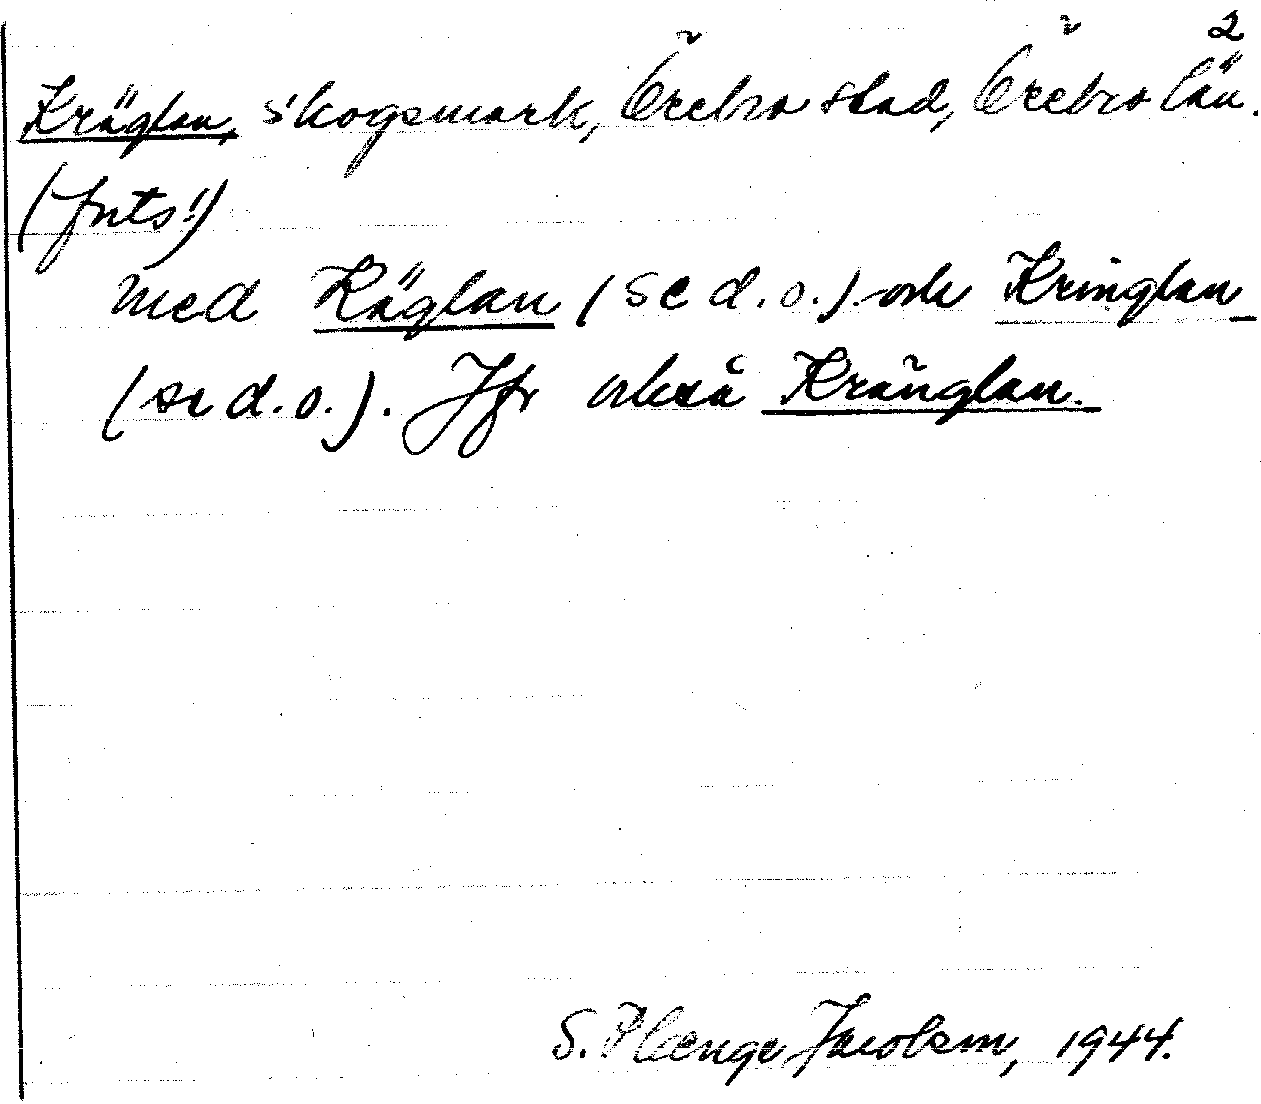 2
Kräglan, skogsmark, Örebro stad, Örebro län.
(forts!)
med Räglan (se d.o.) och Kringlan
(se d.o.). Jfr också Kränglan.
S. Plænge Jacobson, 1944.